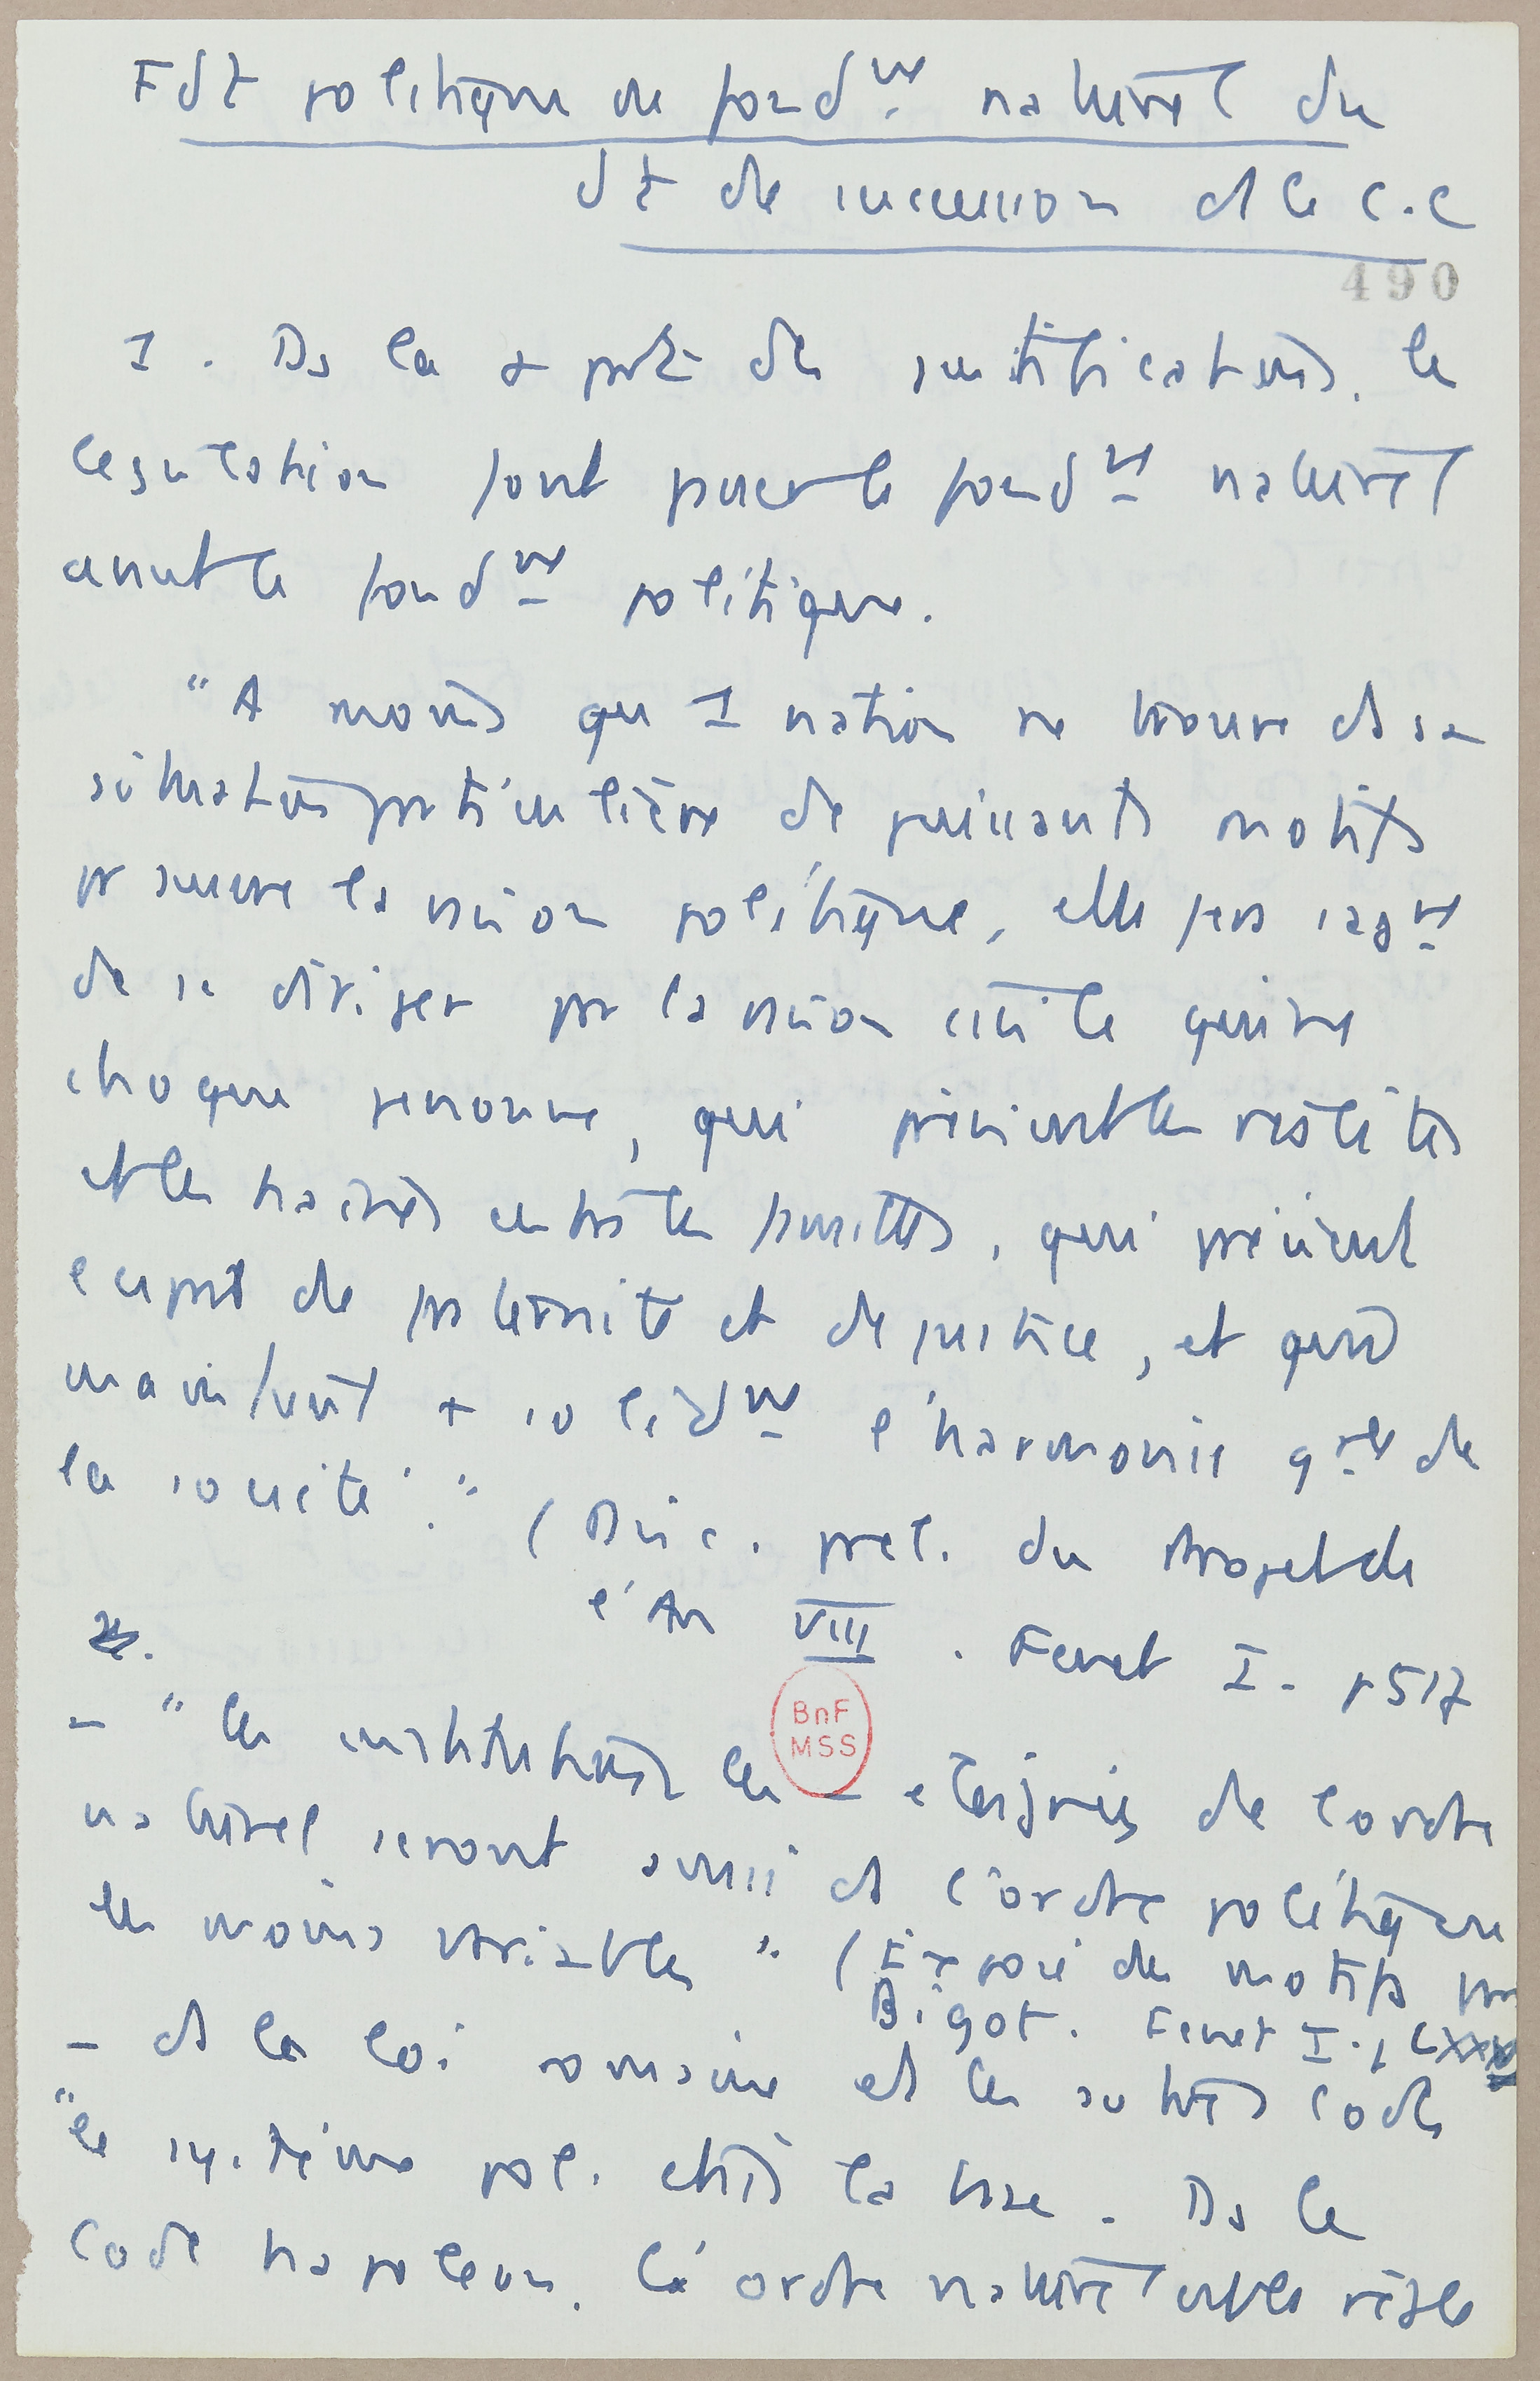 Fdt politique ou fondmt naturel du
dt de succession ds le c.c
490
1. Ds la + part des justifications, le
législation font passer le fondmt naturel
avant le fondmt politique.
"A moins qu' 1 nation ne trouve ds sa
situation particulière de puissants motifs
pr suivre la raison politique, elle sera sagmt
de se diriger par la raison civile qui ne
choque personne, qui prévient les rivalités
et les haines entre les familles, qui prévient
l'esprit de fraternité et de justice, et qui
maintient + solidmt l'harmonie gale de
la société." (Disc. prel. du Projet de
l'An VIII. Fenet I. p 517
- "les institutions les - éloignées de l'ordre
naturel seront aussi ds l'ordre politique
les moins variables" (Exposé des motifs par
Bigot. Fenet I. p CXXX
- ds la loi romaine et ds les autres codes
"le système pol. était la base. Ds le
Code Napoléon, l'ordre naturel est la règle